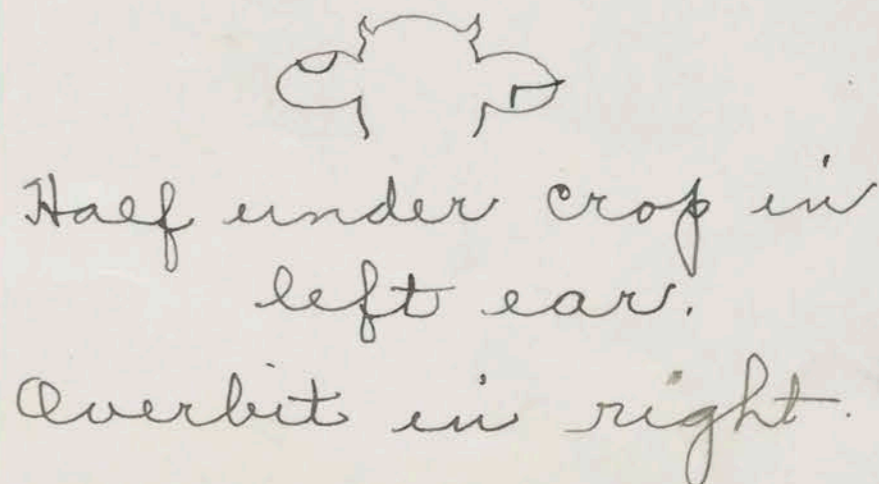 Half under crop in
left ear.
Overbit in right.